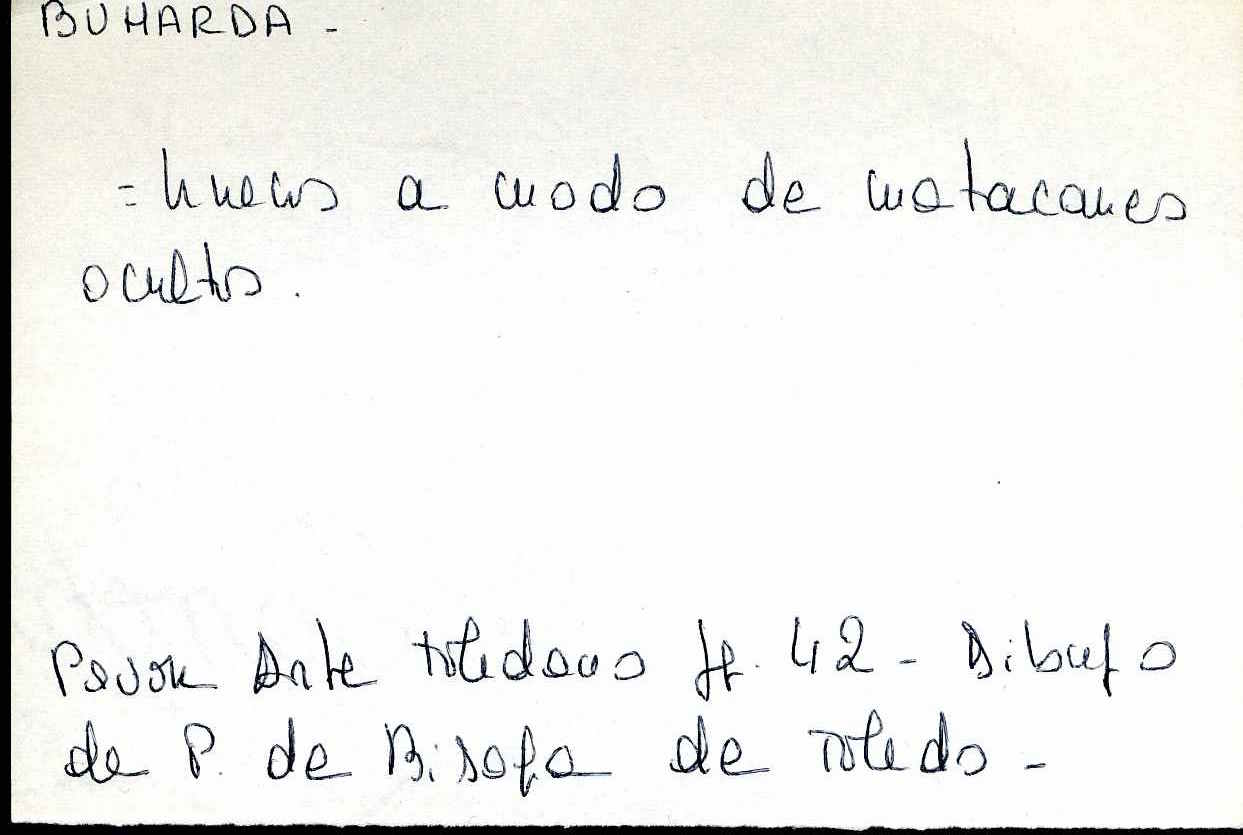 BUHARDA -
= huecos a modo de matacanes
ocultos.
Pavon Arte toledano fg. 42 - Dibujo
de P. de Bisagra de Toledo -